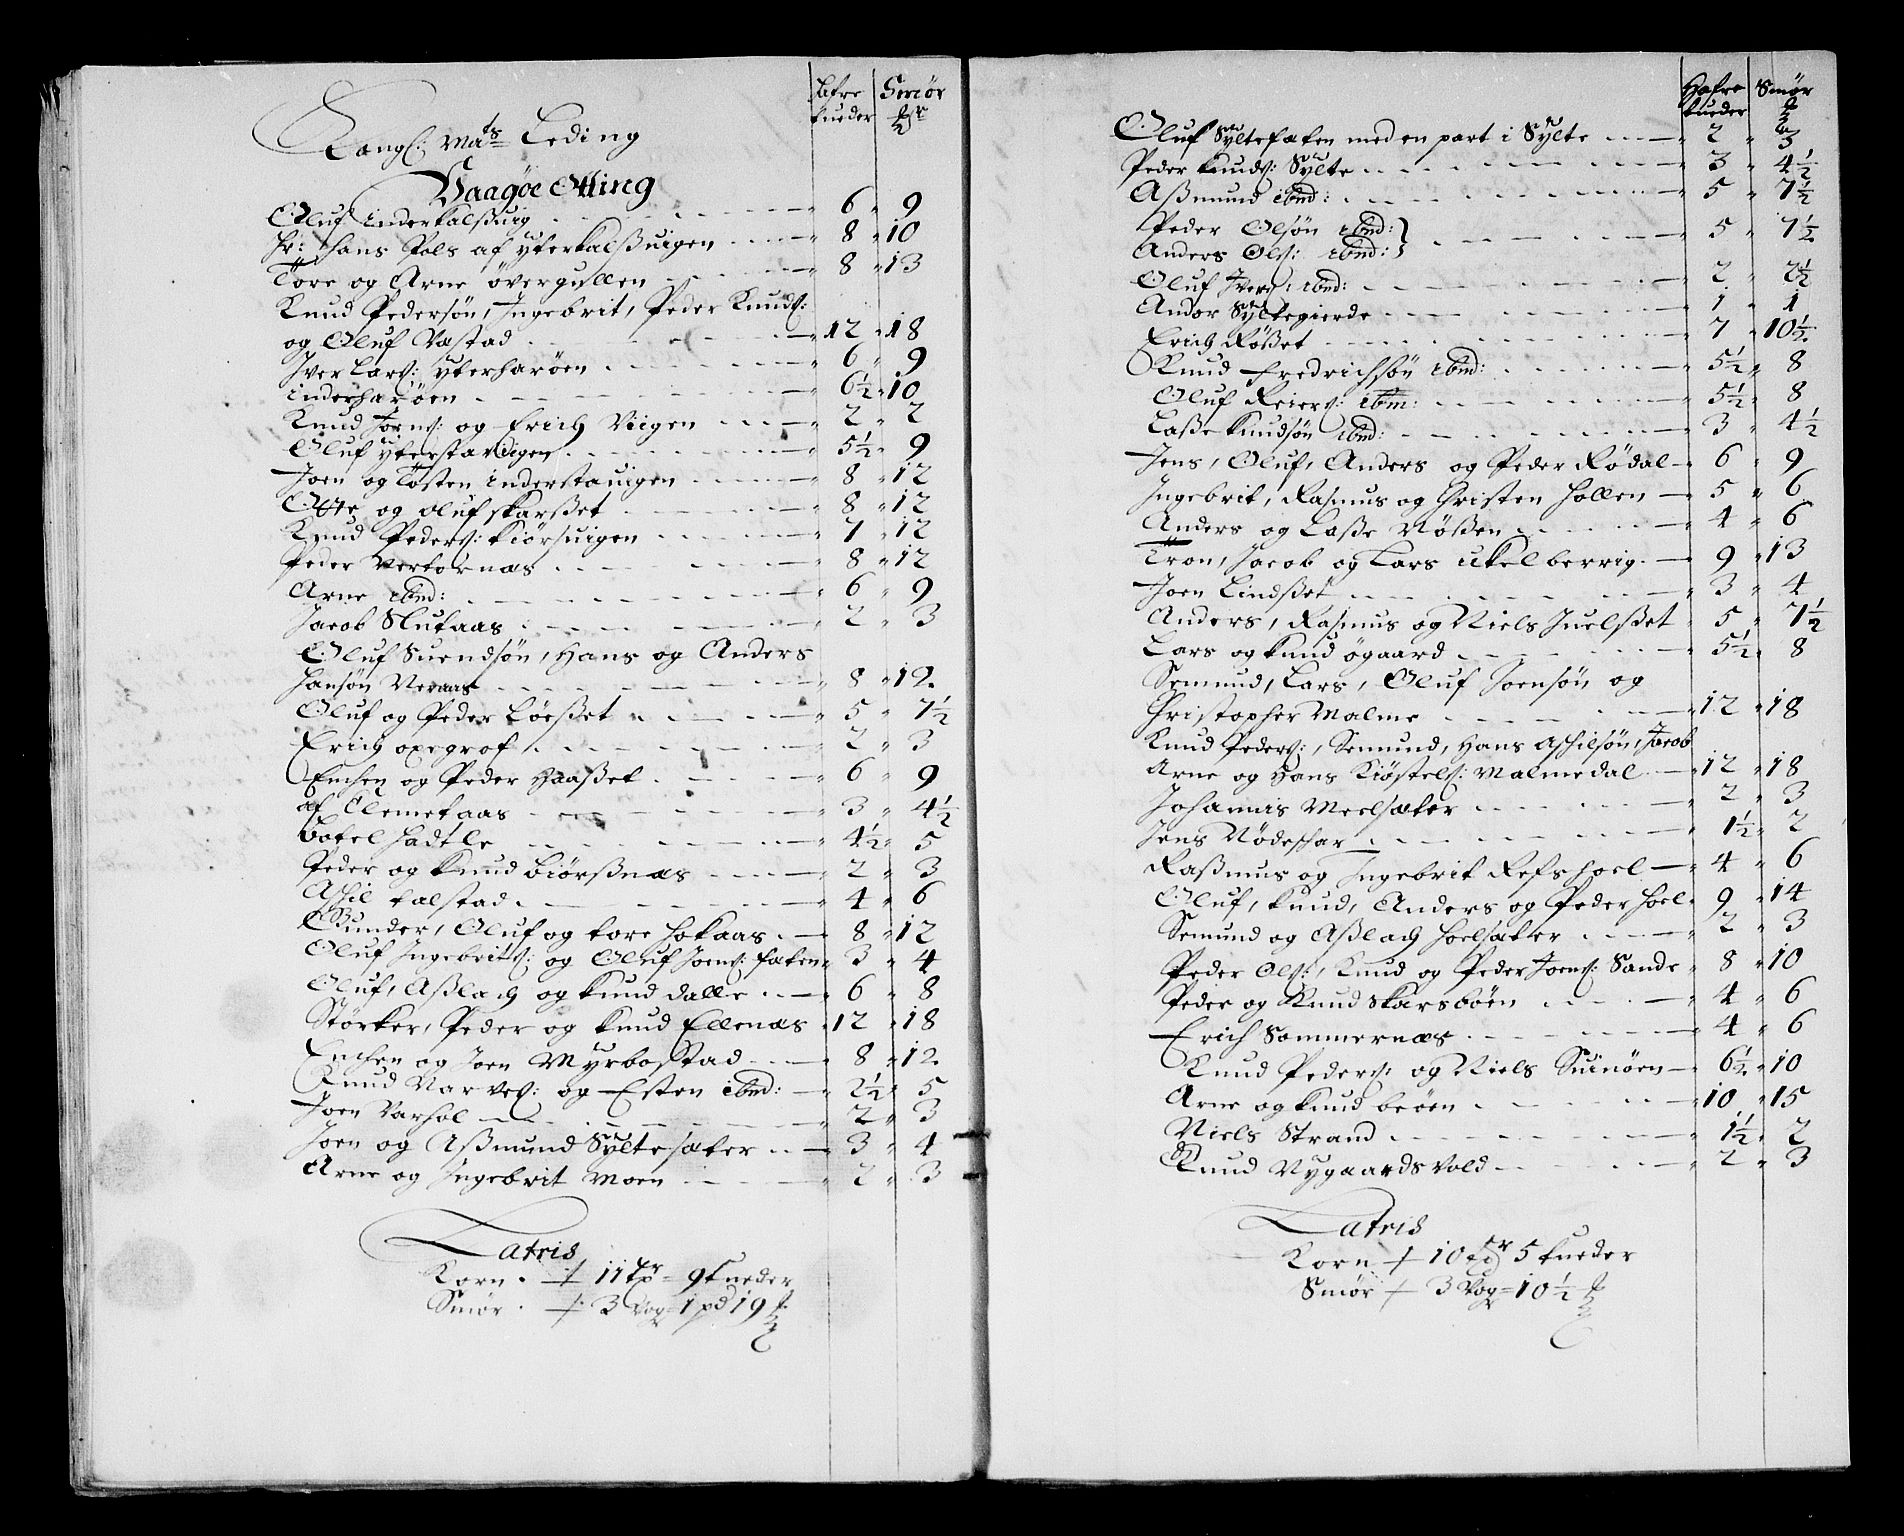 Hafre Smör
kueder ℔r
Kongl: Mats Leding
Vaagöe Otting
Oluf inderkalßuig 6 9
Hr: Hans Pols af ytterkalßuigen 8 10
Tore og Arne övergullen 8 13
Knud Pedersön, Ingebrit, Peder Knuds:
og Oluf Vastad 12 18
Iver Lars: ytterharöen 6 9
inderharöen 6½ 10
Knud Joens: og Erich Viigen 2 2
Oluf ytterstavigen 5½ 9
Joen og Tosten inderstauigen 8 12
Otte og Oluf Skarßet 8 12
Knud Peders: Kiörsuigen 7 12
Peder Vertörnæs 8 12
Arne ibmd: 6 9
Jacob Slutaas 2 3
Oluf Suendsön, Hans og Anders
Hansön Veraas 8 12
Oluf og Peder Löeßet 5 7½
Erich oxegrof 2 3
Enchen og Peder Haaßet 6 9
af Clemetaas 3 4½
Botel Hadtle 4½ 5
Peder og Knud Biörßnæs 2 3
Aschil talstad 4 6
Gunder, Oluf og tore Hokaas 8 12
Oluf Ingebrits: og Oluf Joens: faten 3 4
Oluf, Aßlach og Knud Dalle 6 8
Störker, Peder og Knud Ellenæs 12 18
Enchen og Joen Myrbostad 8 12
Knud Narves: og Esten ibmd: 2½ 5
Joen Varhol 2 3
Joen og Aßmund Syltesæter 3 4
Arne og Ingebrit Moen 2 3
Latris
Korn 11 tr 9 kueder
Smör 3 vog 1 pd 19 ℔
Hafre Smör
kueder ℔
Oluf Syltefaten med en part i Sylte 2 3
Peder Knuds: Sylte 3 4½
Aßmund ibmd: 5 7½
Peder Olsön ibmd:
Anders Ols: ibmd: 5 7½
Oluf Ivers: ibmd: 2 2½
Andor Syltegierde 1 1
Erich Rößet 7 10½
Knud Fredrichsön ibmd: 5½ 8
Oluf Reiers: ibm: 5½ 8
Laße Knudsön ibmd: 3 4½
Jens, Oluf, Anders og Peder Rödal 6 9
Ingebrit, Rasmus og Christen Hollen 5 6
Anders og Laße Nößen 4 6
Tron, Jacob og Lars ukelberrig 9 13
Joen Lindßet 3 4
Anders, Rasmus og Niels Juelßet 5 7½
Lars og Knud ögaard 5½ 8
Semund, Lars, Oluf Joensön og
Christopher Malme 12 18
Knud Peders:, Semund, Hans Aschilsön, Jacob
Arne og Hans Kiöstels: Malmedal 12 18
Johannis Meelsæter 2 3
Jens Nödeschar 1½ 2
Raßmus og Ingebrit Refshoel 4 6
Oluf, Knud, Anders og Peder Hoel 9 14
Semund og Aßlach Hoelsæter 2 3
Peder Ols:, Knud og Peder Joens: Sande 8 10
Peder og Knud Skarsböen 4 6
Erich Sommernæs 4 6
Knud Peders: og Niels Suinöen 6½ 10
Arne og Knud beöen 10 15
Niels Strand 1½ 2
Knud Nygaardsvold 2 3
Latris
Korn 10 tr 5 kueder
Smör 3 vog 10½ ℔